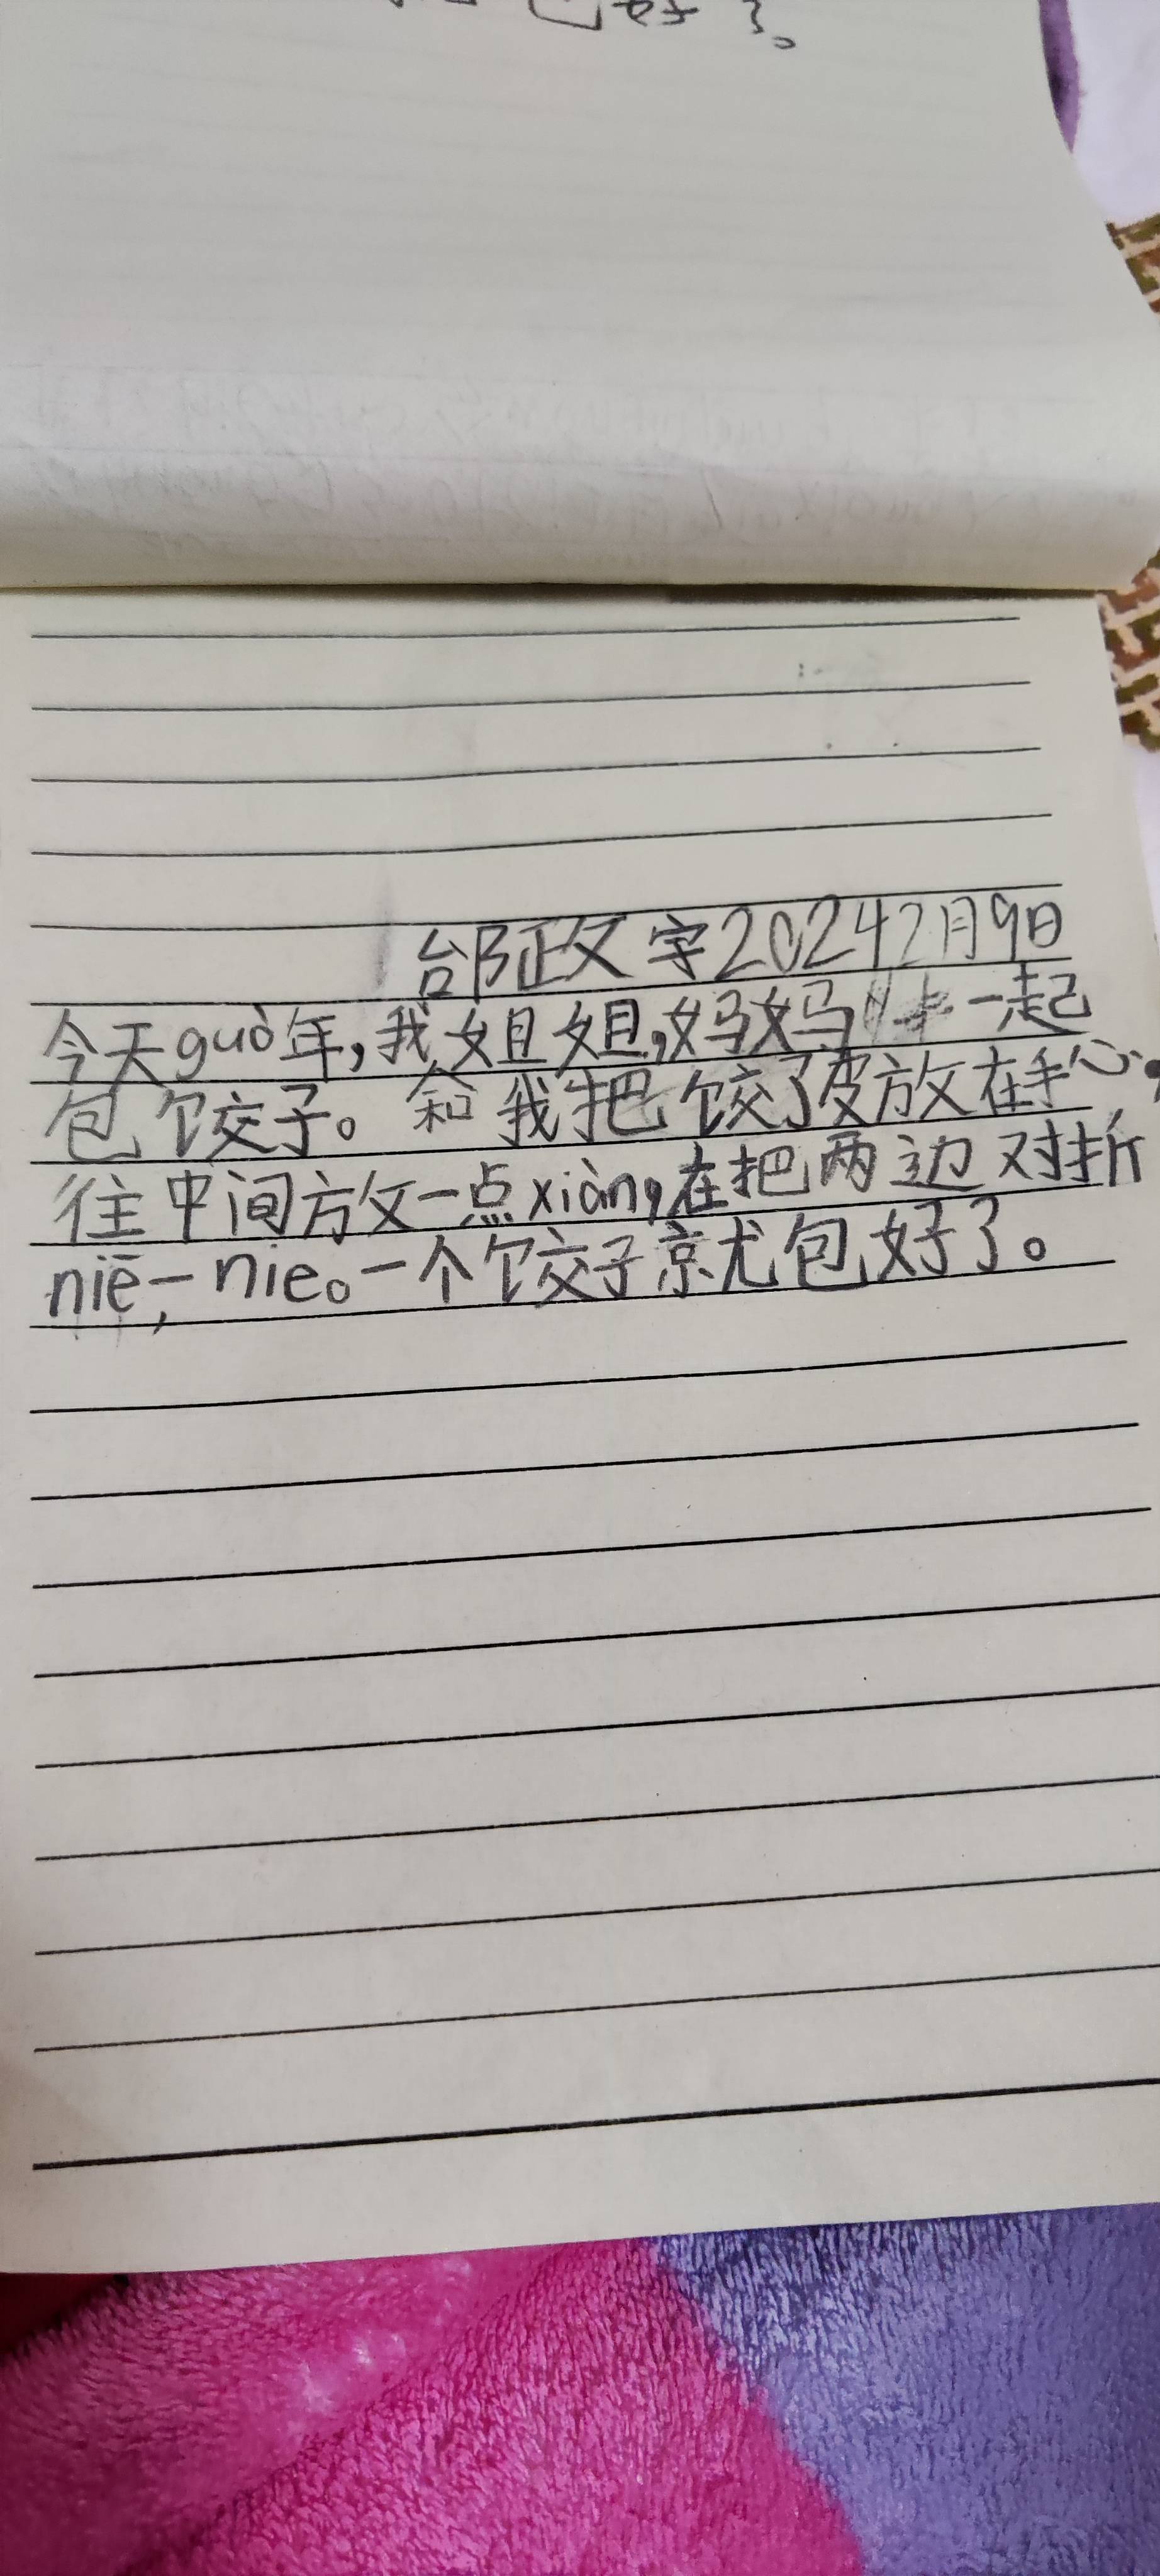 包好了。
邰政文字20242月9日
今天guò年,我姐姐,妈妈一起
包饺子。我把饺了皮放在手心,
往中间放一点xiàn,在把两边对折
niē,一nie。一个饺子就包好了。